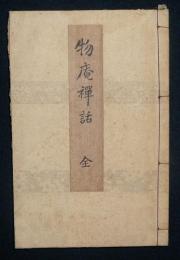 物庵禪話 全